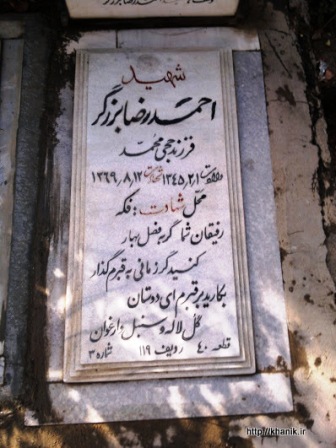 شهید
احمدرضا برزگر
فرزند حجی محمد
ولادت ۱۳۴۵٫۲٫۱ شهادت ۱۳۶۹٫۸٫۱۲
محل شهادت: فکه
رفیقان شما گر به فصل بهار
کنید گر زمانی به قبرم گذار
بکارید بر قبرم ای دوستان
گل لاله و سنبل و ارغوان
قطعه ۴۰ ردیف ۱۱۹ شماره ۳
http://khanik.ir